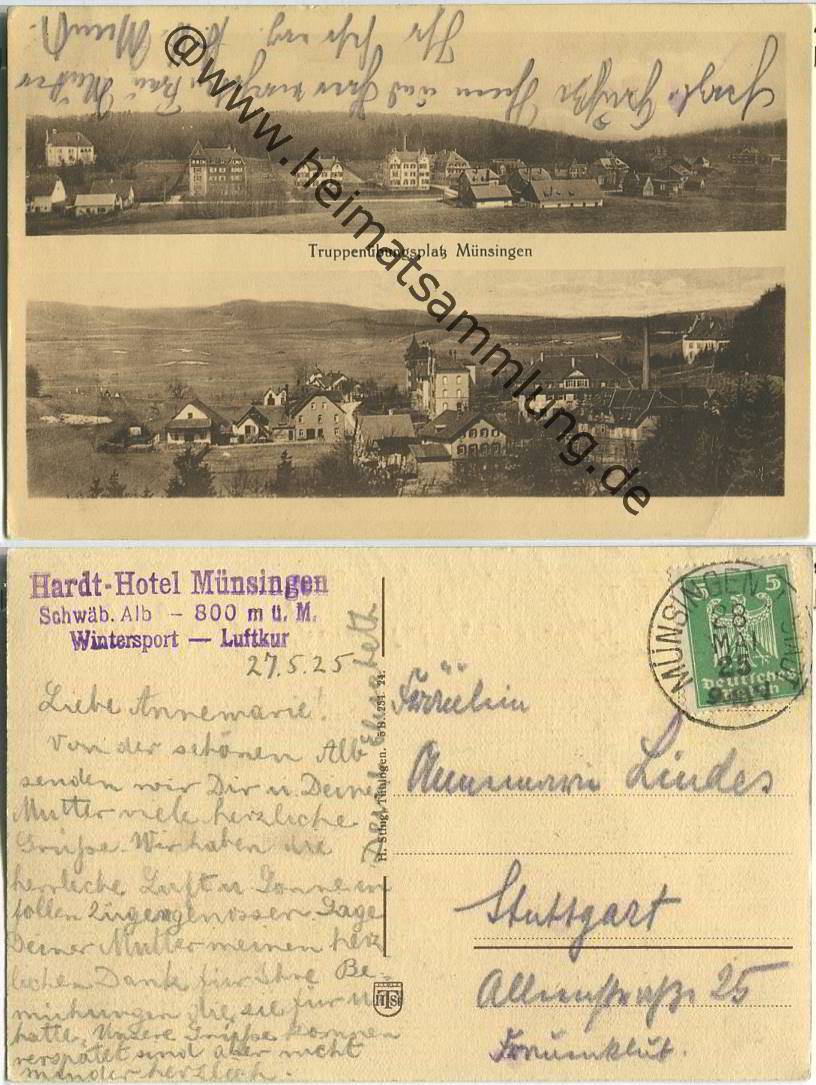 Ihr sehr erg.
Herzl. Grüße Ihnen und Ihrer Frau Mutter
@www.heimatsammlung.de
Truppenübungsplatz Münsingen
Hardt-Hotel Münsingen
Schwäb. Alb - 800 m ü. M.
Wintersport — Luftkur
27.5.25
Liebe Annemarie!
Von der schönen Alb
senden wir Dir u. Deiner
Mutter viele herzliche
Grüße. Wir haben die
herrliche Luft u Sonne in
vollen Zügen genossen. Sage
Deiner Mutter meinen herz
lichen Dank für Ihre Be-
mühungen die sie für u
hatte. Unsere Grüße kommen
verspätet sind aber nicht
minder herzlich.
Elisabeth
H. Sting, Tübingen. 5 B. 251 24.
HST
MÜNSINGEN
28
MAI
25
5 5
Deutsches
Reich
Fräulein
Annemarie Lindes
Stuttgart
25